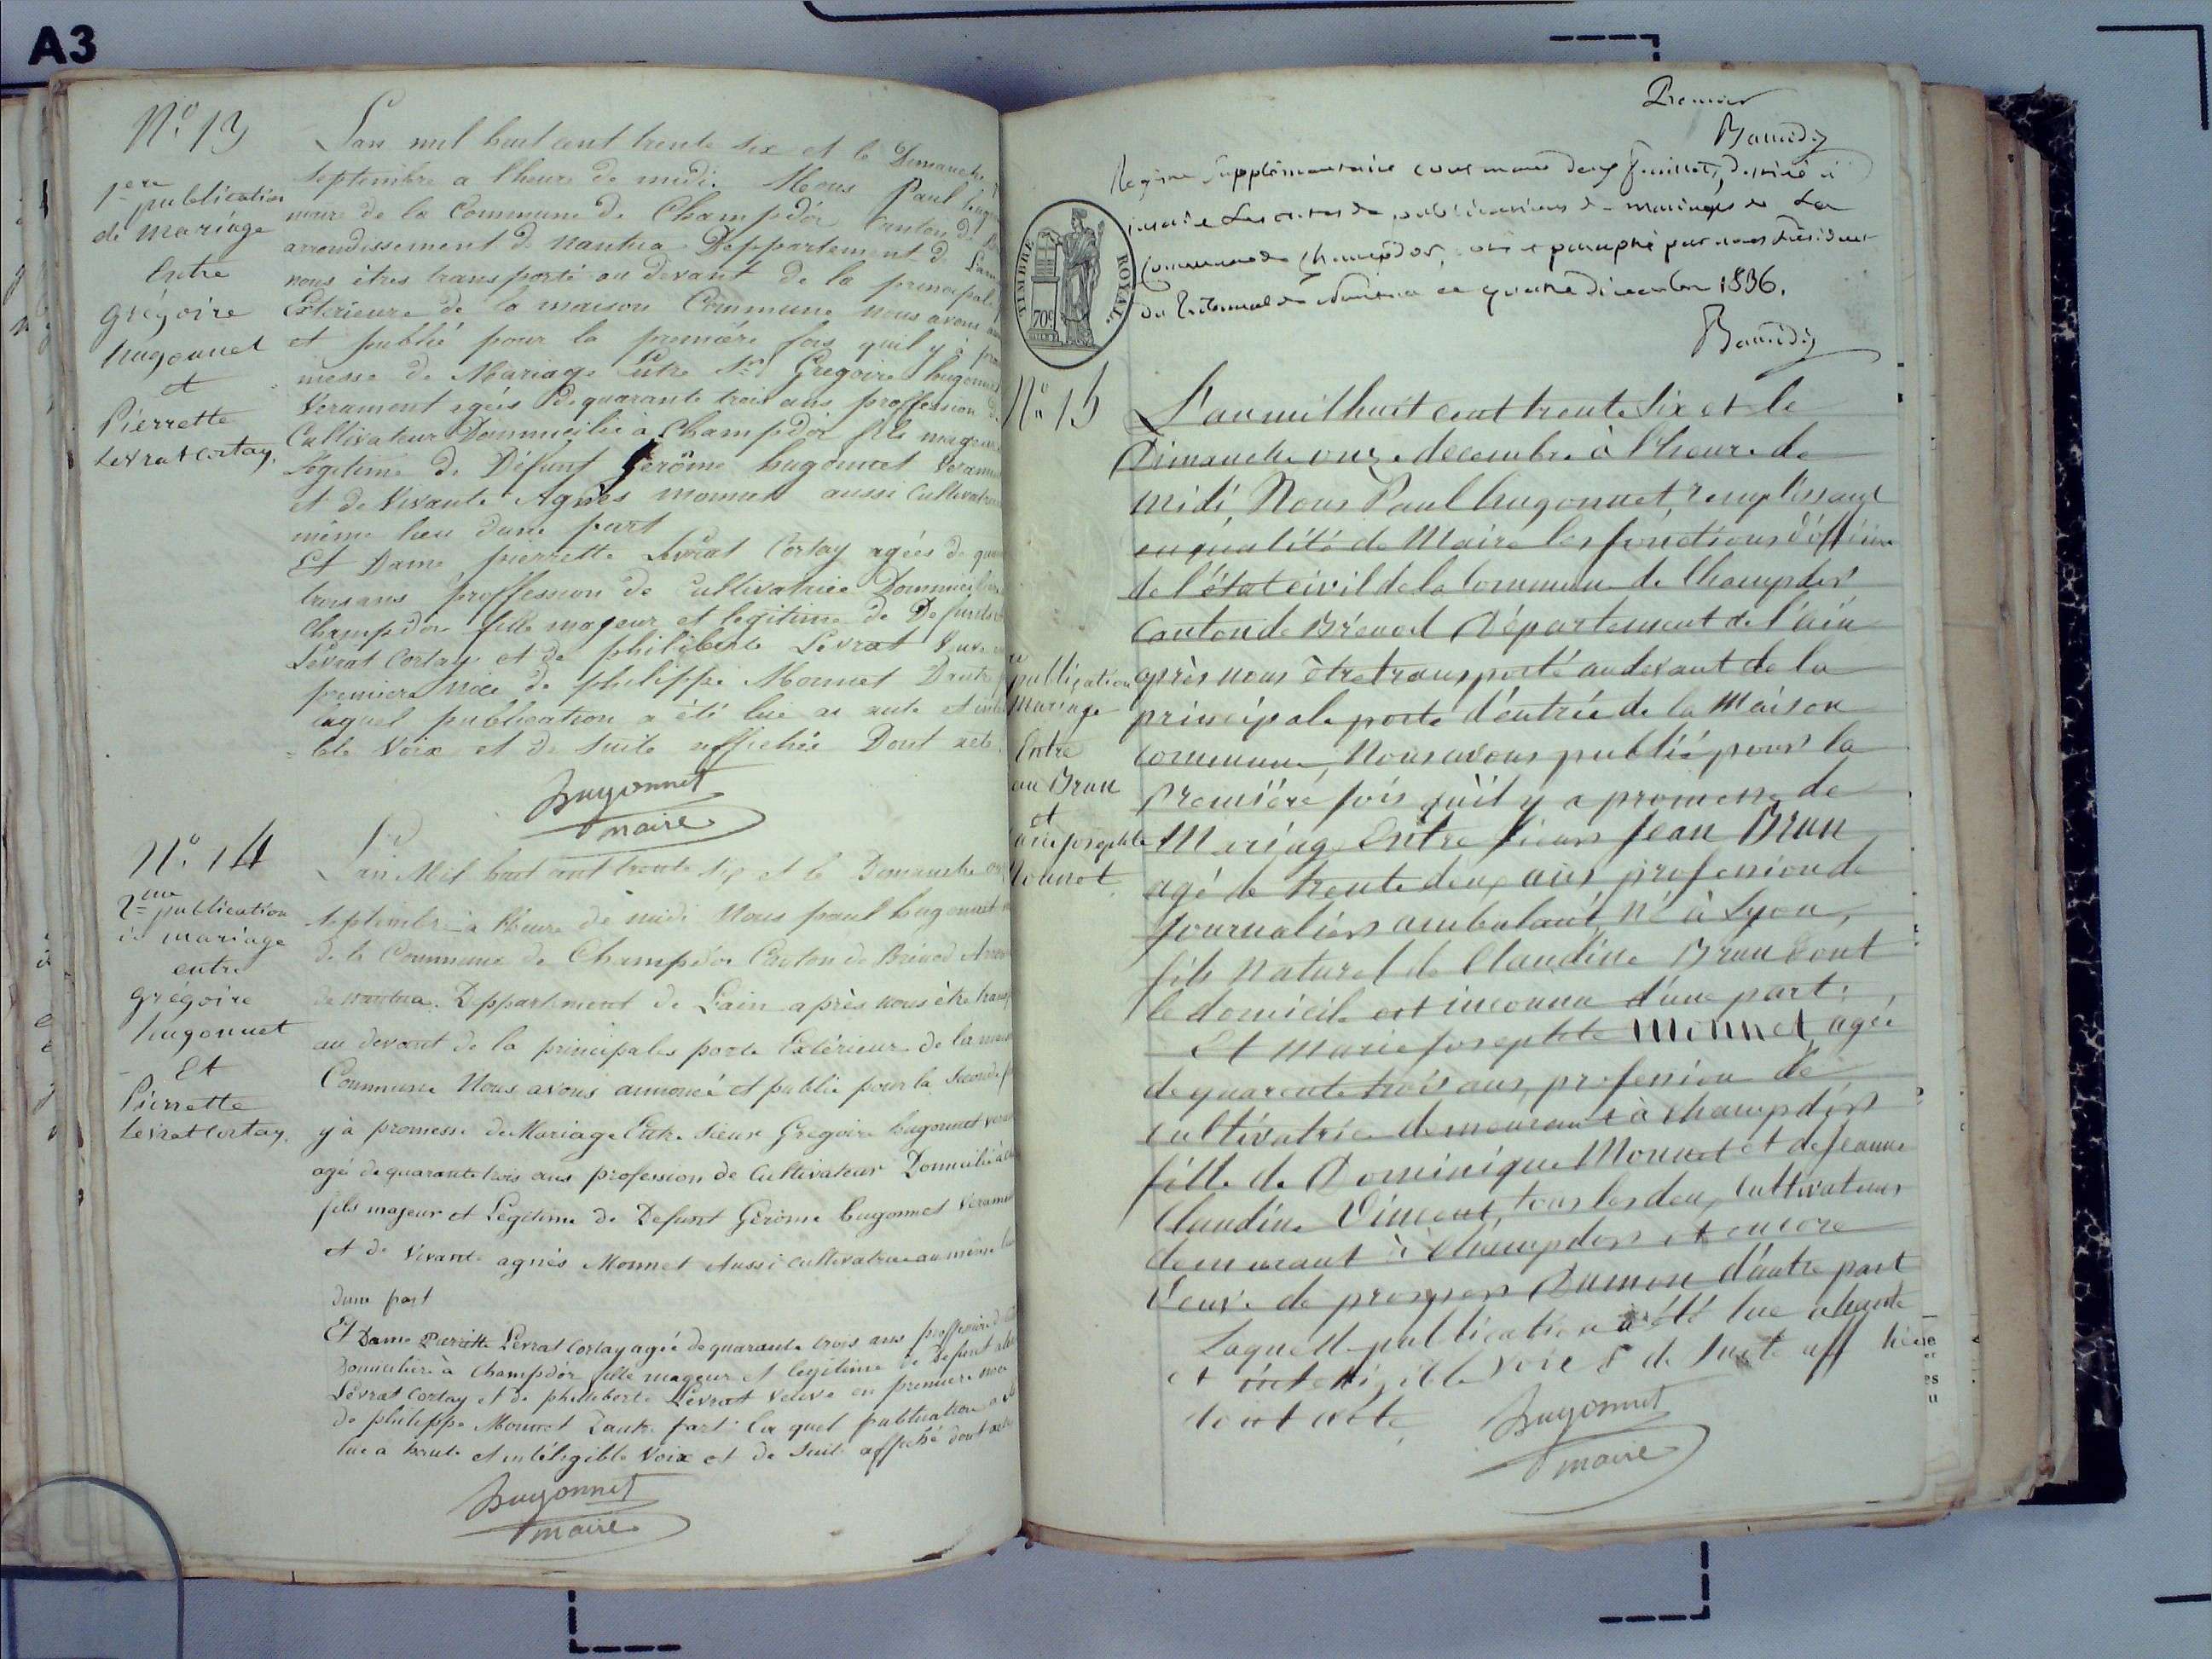 A3
N.o 13
1ere publication
de mariage
Entre
grégoire
hugonnet
et
Pierrette
Levrat Cortay.
Lan mil huit cent trente six et le Dimanche
Septembre a lheure de midi. Nous Paul
maire de la Commune de Champdor Canton de
arrondissement de nantua Deppartement de Lain
nous êtres transporté au devant de la principale
Exterieure de la maison Commune nous avons
et publié pour la première fois quil y à pro
messe de Mariage Entre Sr. Gregoire hugonnet
Verament agées de quarante trois ans proffession de
Cultivateur Dommicilié à Champdor fils mageur
légitime de Défunt Gerôme hugonnet Verament
et de Vivante Agnès monnet aussi Cultivatrice
même lieu dune part
Et Dame pierrette Levrat Cortay agées de quarante
trois ans proffession de Cultivatrice Dommiciliée
Champdor fille majeur et legitime de Defunt
Levrat Cortay et de philiberte Levrat Veuve en
premiere noce de philippe Monnet Dautre part
laquel publication a été lue a aute et inteli
ble Voix et de Suite affichée Dont acte.
hugonnet
maire
N.o 14
2eme publication
de mariage
entre
grégoire
hugonnet
Et
Pierrette
Levrat Cortay.
Lan Mil huit cent trente six et le Dimanche
Septembre à lheure de midi Nous paul hugonnet
de la Commune de Champdor Canton de Brénod Arron
de nantua. Deppartement de Lain après nous être trans
au devant de la principales porte Extérieur de la maison
Commune Nous avons annoncé et publié pour la Seconde
y à promesse de Mariage Entre Sieur Gregoire hugonnet
agé de quarante trois ans profession de Cultivateur Domicilié à
fils majeur et Légitime de Defunt Gérôme hugonnet Verament
et de Vivante agnès Monnet Aussi cultivatrice au même lieu
dune part
Et Dame Pierrette Levrat Cortay agée de quarante trois ans proffession de
Domiciliée à Champdor fille mageur et légitime de Defunt
Levrat Cortay et de philiberte Levrat Veuve en premiere noce
de philippe Monnet Dautre part la quel publication a été
lue a haute et intéligible Voix et de Suite affiché dont acte
hugonnet
maire
Premier
Registre Supplémentaire contenant deux feuillets, destiné à
inscrire Les actes de publications de mariages de La
Commune de Champdor, coté et paraphé par nous Président
du Tribunal de Nantua ce quatre décembre 1836.
TIMBRE ROYAL.
70c
N.o 15
publication
Mariage
Entre
Jean Brun
et
Marie Josephte
Monnet
L'an mil huit cent trente six et le
Dimanche onze decembre à l'heure de
midi Nous Paul hugonnet, remplissant
en qualité de Maire les fonctions d'officier
de l'état civil de la Commune de Champdor
Canton de Brénod Département de l'ain
après nous être transporté au devant de la
principale porte d'entrée de la Maison
commune, Nous avons publié pour la
Première fois qu'il y a promesse de
Mariage Entre Sieur Jean Brun
agé de trente deux ans profession de
Journalier ambulant né à Lyon,
fils Naturel de Claudine Brun dont
le domicile est inconnu d'une part.
Et Marie Josephte Monnet, agée
de quarente trois ans, profession de
cultivatrice demeurant à champdor
fille de Dominique Monnet et de Jeanne
Claudine Vincent, tous les deux Cultivateurs
demeurant à Champdor et encore
Veuve de prosper Dumon d'autre part
Laquelle publication a été lue a haute
et intelligible voie & de suite affichée
dont acte.
hugonnet
maire